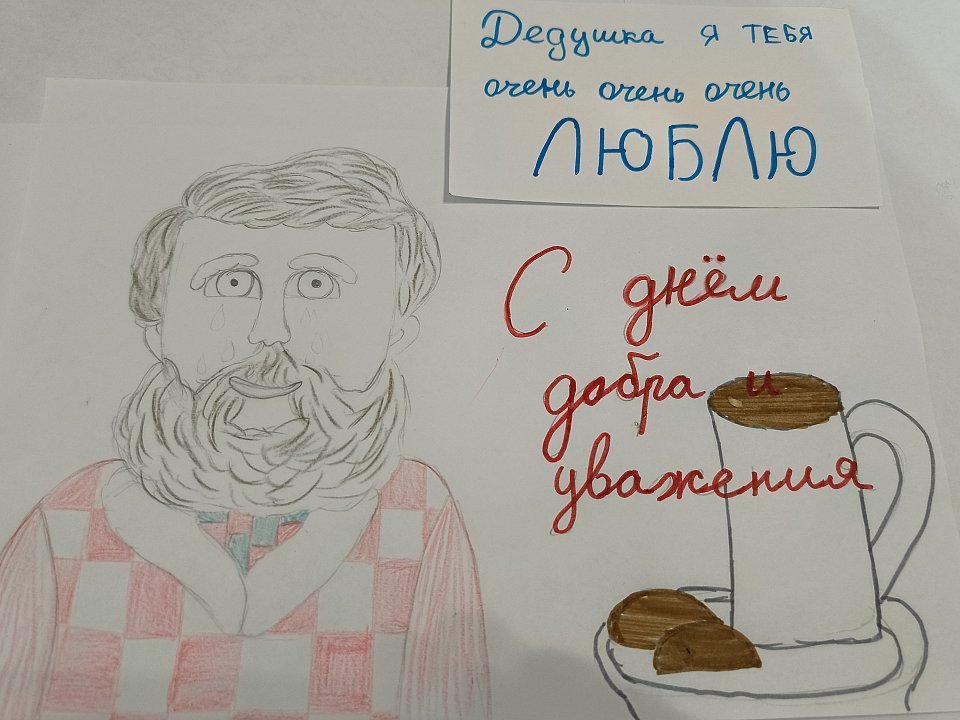 Дедушка я ТЕБЯ
очень очень очень
ЛЮБЛЮ
С днём
добра и
уважения